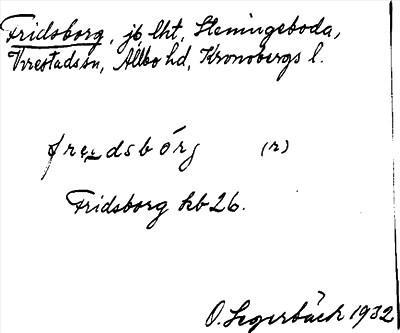 Fridsborg, jb lht, Steningeboda,
Virestads sn, Allbo hd, Kronobergs l.
fre̱dsbórg (r)
Fridsborg kb 26.
O. Segerbäck 1932